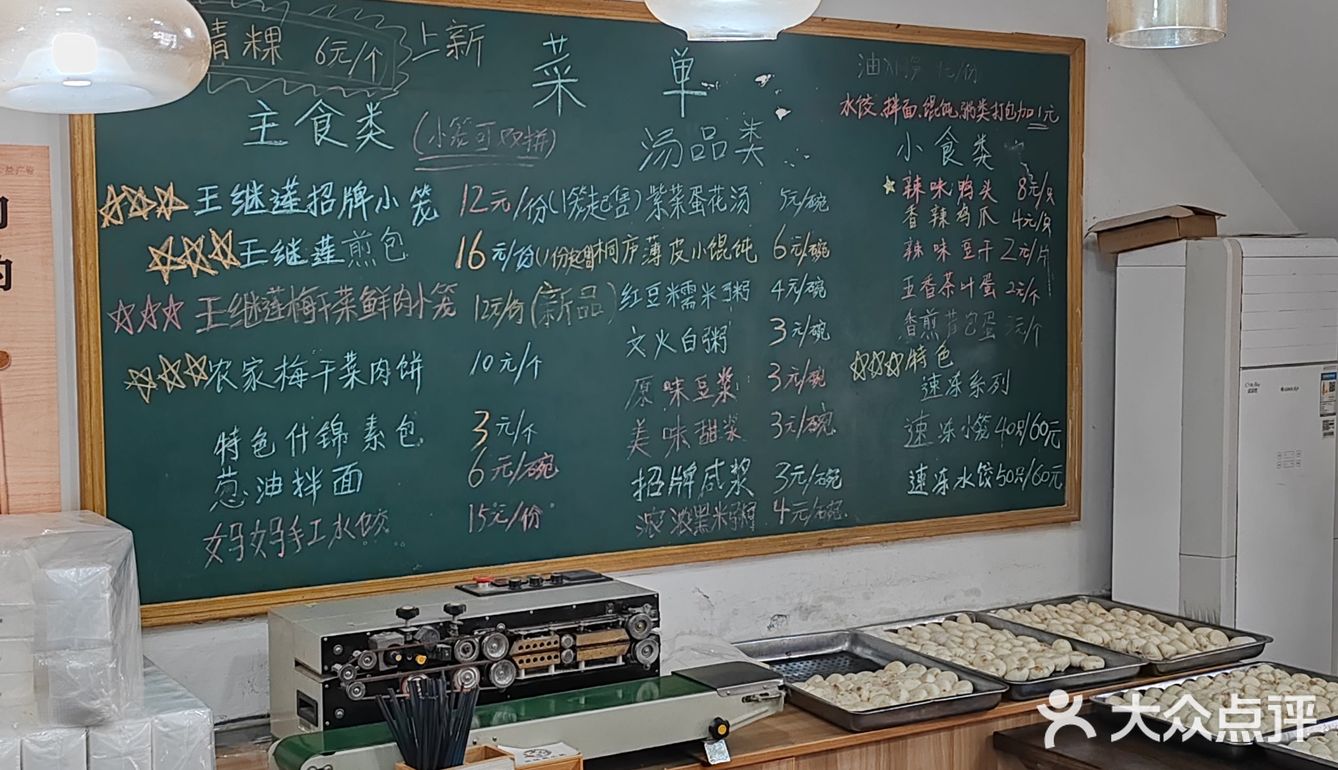 青粿 6元/个 上新
菜单
主食类 (小笼可双拼)
王继莲招牌小笼 12元/份(1笼起售)
王继莲煎包 16元/份(1份起售)
王继莲梅干菜鲜肉小笼 12元/份(新品)
农家梅干菜肉饼 10元/个
特色什锦素包 3元/个
葱油拌面 6元/碗
妈妈手工水饺 15元/份
汤品类
紫菜蛋花汤 5元/碗
桐庐薄皮小馄饨 6元/碗
红豆糯米粥 4元/碗
文火白粥 3元/碗
原味豆浆 3元/碗
美味甜浆 3元/碗
招牌咸浆 3元/碗
浓浓黑米粥 4元/碗
水饺、拌面、馄饨、粥类打包加1元
小食类
辣味鸭头 8元/只
香辣鸡爪 4元/只
辣味豆干 2元/片
五香茶叶蛋 2元/个
香煎荷包蛋 3元/个
特色
速冻系列
速冻小笼40只/60元
速冻水饺50只/60元
大众点评